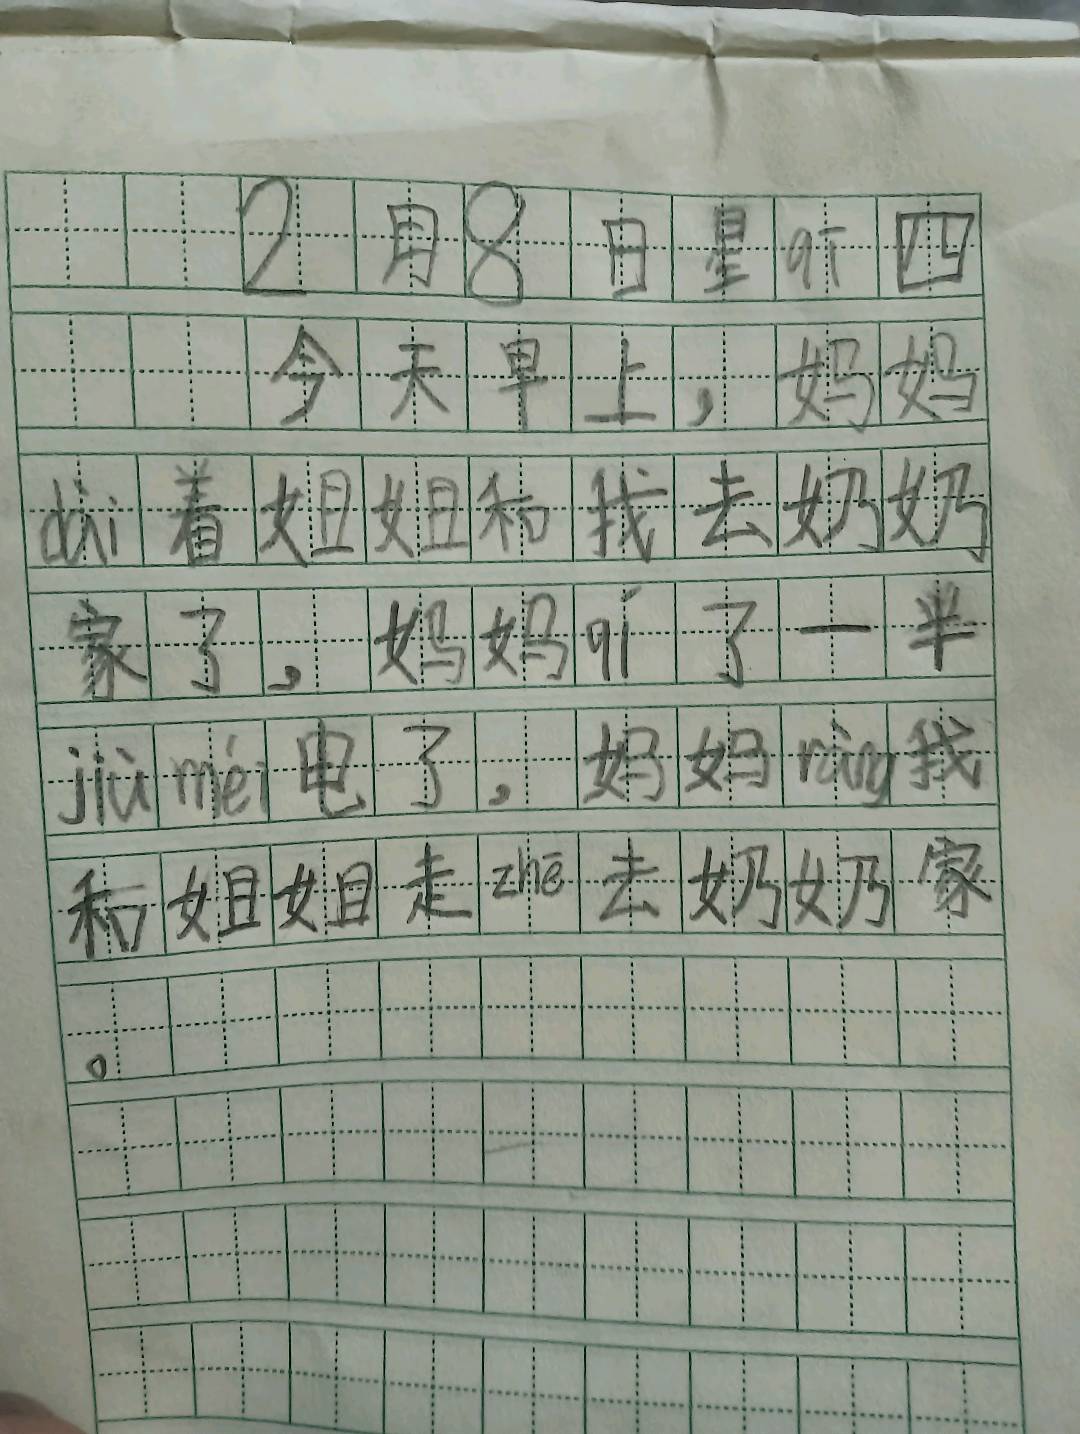 2月8日星qī四
今天早上，妈妈
dài着姐姐和我去奶奶
家了，妈妈qí了一半
jiù méi电了，妈妈ràng我
和姐姐走zhē去奶奶家
。